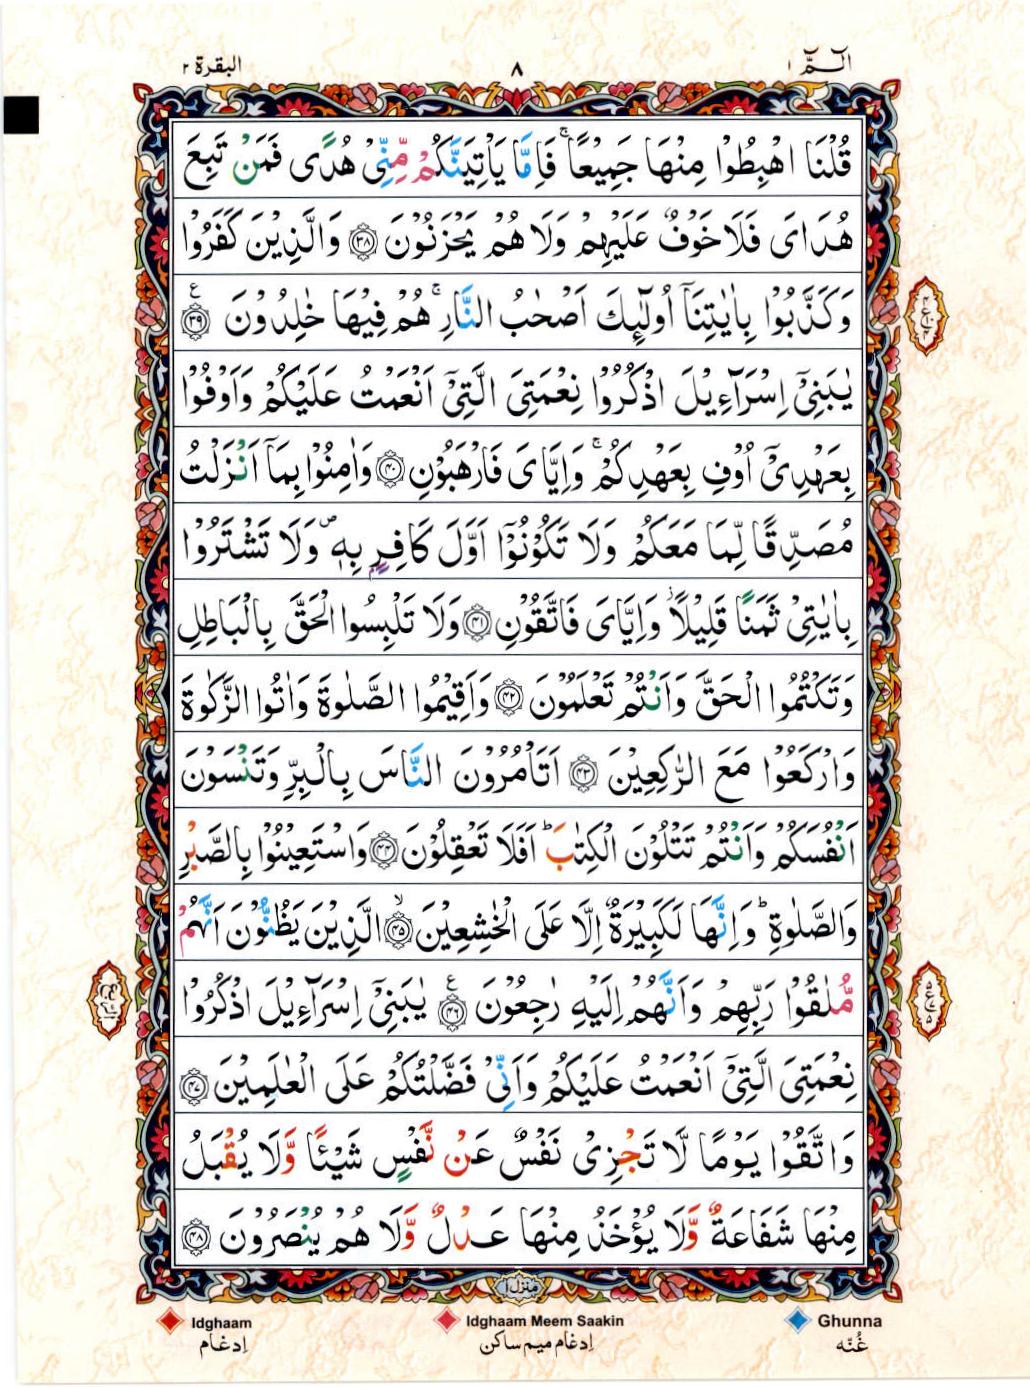 الٓـمّٓ ١
٨
البقرة ٢
قُلْنَا اهْبِطُوْا مِنْهَا جَمِيْعًا ۚ فَاِمَّا يَاْتِيَنَّكُمْ مِّنِّيْ هُدًى فَمَنْ تَبِعَ
هُدَايَ فَلَا خَوْفٌ عَلَيْهِمْ وَلَا هُمْ يَحْزَنُوْنَ ﴿٣٨﴾ وَالَّذِيْنَ كَفَرُوْا
وَكَذَّبُوْا بِاٰيٰتِنَآ اُولٰٓئِكَ اَصْحٰبُ النَّارِ ۚ هُمْ فِيْهَا خٰلِدُوْنَ ﴿٣٩﴾ ع
يٰبَنِيْٓ اِسْرَآءِيْلَ اذْكُرُوْا نِعْمَتِيَ الَّتِيْٓ اَنْعَمْتُ عَلَيْكُمْ وَاَوْفُوْا
بِعَهْدِيْٓ اُوْفِ بِعَهْدِكُمْ ۚ وَاِيَّايَ فَارْهَبُوْنِ ﴿٤٠﴾ وَاٰمِنُوْا بِمَآ اَنْزَلْتُ
مُصَدِّقًا لِّمَا مَعَكُمْ وَلَا تَكُوْنُوْٓا اَوَّلَ كَافِرٍۭ بِهٖ ۪ وَلَا تَشْتَرُوْا
بِاٰيٰتِيْ ثَمَنًا قَلِيْلًا ۙ وَاِيَّايَ فَاتَّقُوْنِ ﴿٤١﴾ وَلَا تَلْبِسُوا الْحَقَّ بِالْبَاطِلِ
وَتَكْتُمُوا الْحَقَّ وَاَنْتُمْ تَعْلَمُوْنَ ﴿٤٢﴾ وَاَقِيْمُوا الصَّلٰوةَ وَاٰتُوا الزَّكٰوةَ
وَارْكَعُوْا مَعَ الرّٰكِعِيْنَ ﴿٤٣﴾ اَتَاْمُرُوْنَ النَّاسَ بِالْبِرِّ وَتَنْسَوْنَ
اَنْفُسَكُمْ وَاَنْتُمْ تَتْلُوْنَ الْكِتٰبَ ؕ اَفَلَا تَعْقِلُوْنَ ﴿٤٤﴾ وَاسْتَعِيْنُوْا بِالصَّبْرِ
وَالصَّلٰوةِ ؕ وَاِنَّهَا لَكَبِيْرَةٌ اِلَّا عَلَى الْخٰشِعِيْنَ ﴿٤٥﴾ ۙ الَّذِيْنَ يَظُنُّوْنَ اَنَّهُمْ
مُّلٰقُوْا رَبِّهِمْ وَاَنَّهُمْ اِلَيْهِ رٰجِعُوْنَ ﴿٤٦﴾ ع يٰبَنِيْٓ اِسْرَآءِيْلَ اذْكُرُوْا
نِعْمَتِيَ الَّتِيْٓ اَنْعَمْتُ عَلَيْكُمْ وَاَنِّيْ فَضَّلْتُكُمْ عَلَى الْعٰلَمِيْنَ ﴿٤٧﴾
وَاتَّقُوْا يَوْمًا لَّا تَجْزِيْ نَفْسٌ عَنْ نَّفْسٍ شَيْـًٔا وَّلَا يُقْبَلُ
مِنْهَا شَفَاعَةٌ وَّلَا يُؤْخَذُ مِنْهَا عَدْلٌ وَّلَا هُمْ يُنْصَرُوْنَ ﴿٤٨﴾
منزل ١
Idghaam
Idghaam Meem Saakin
Ghunna
اِدغام
اِدغام میم ساکن
غُنّه